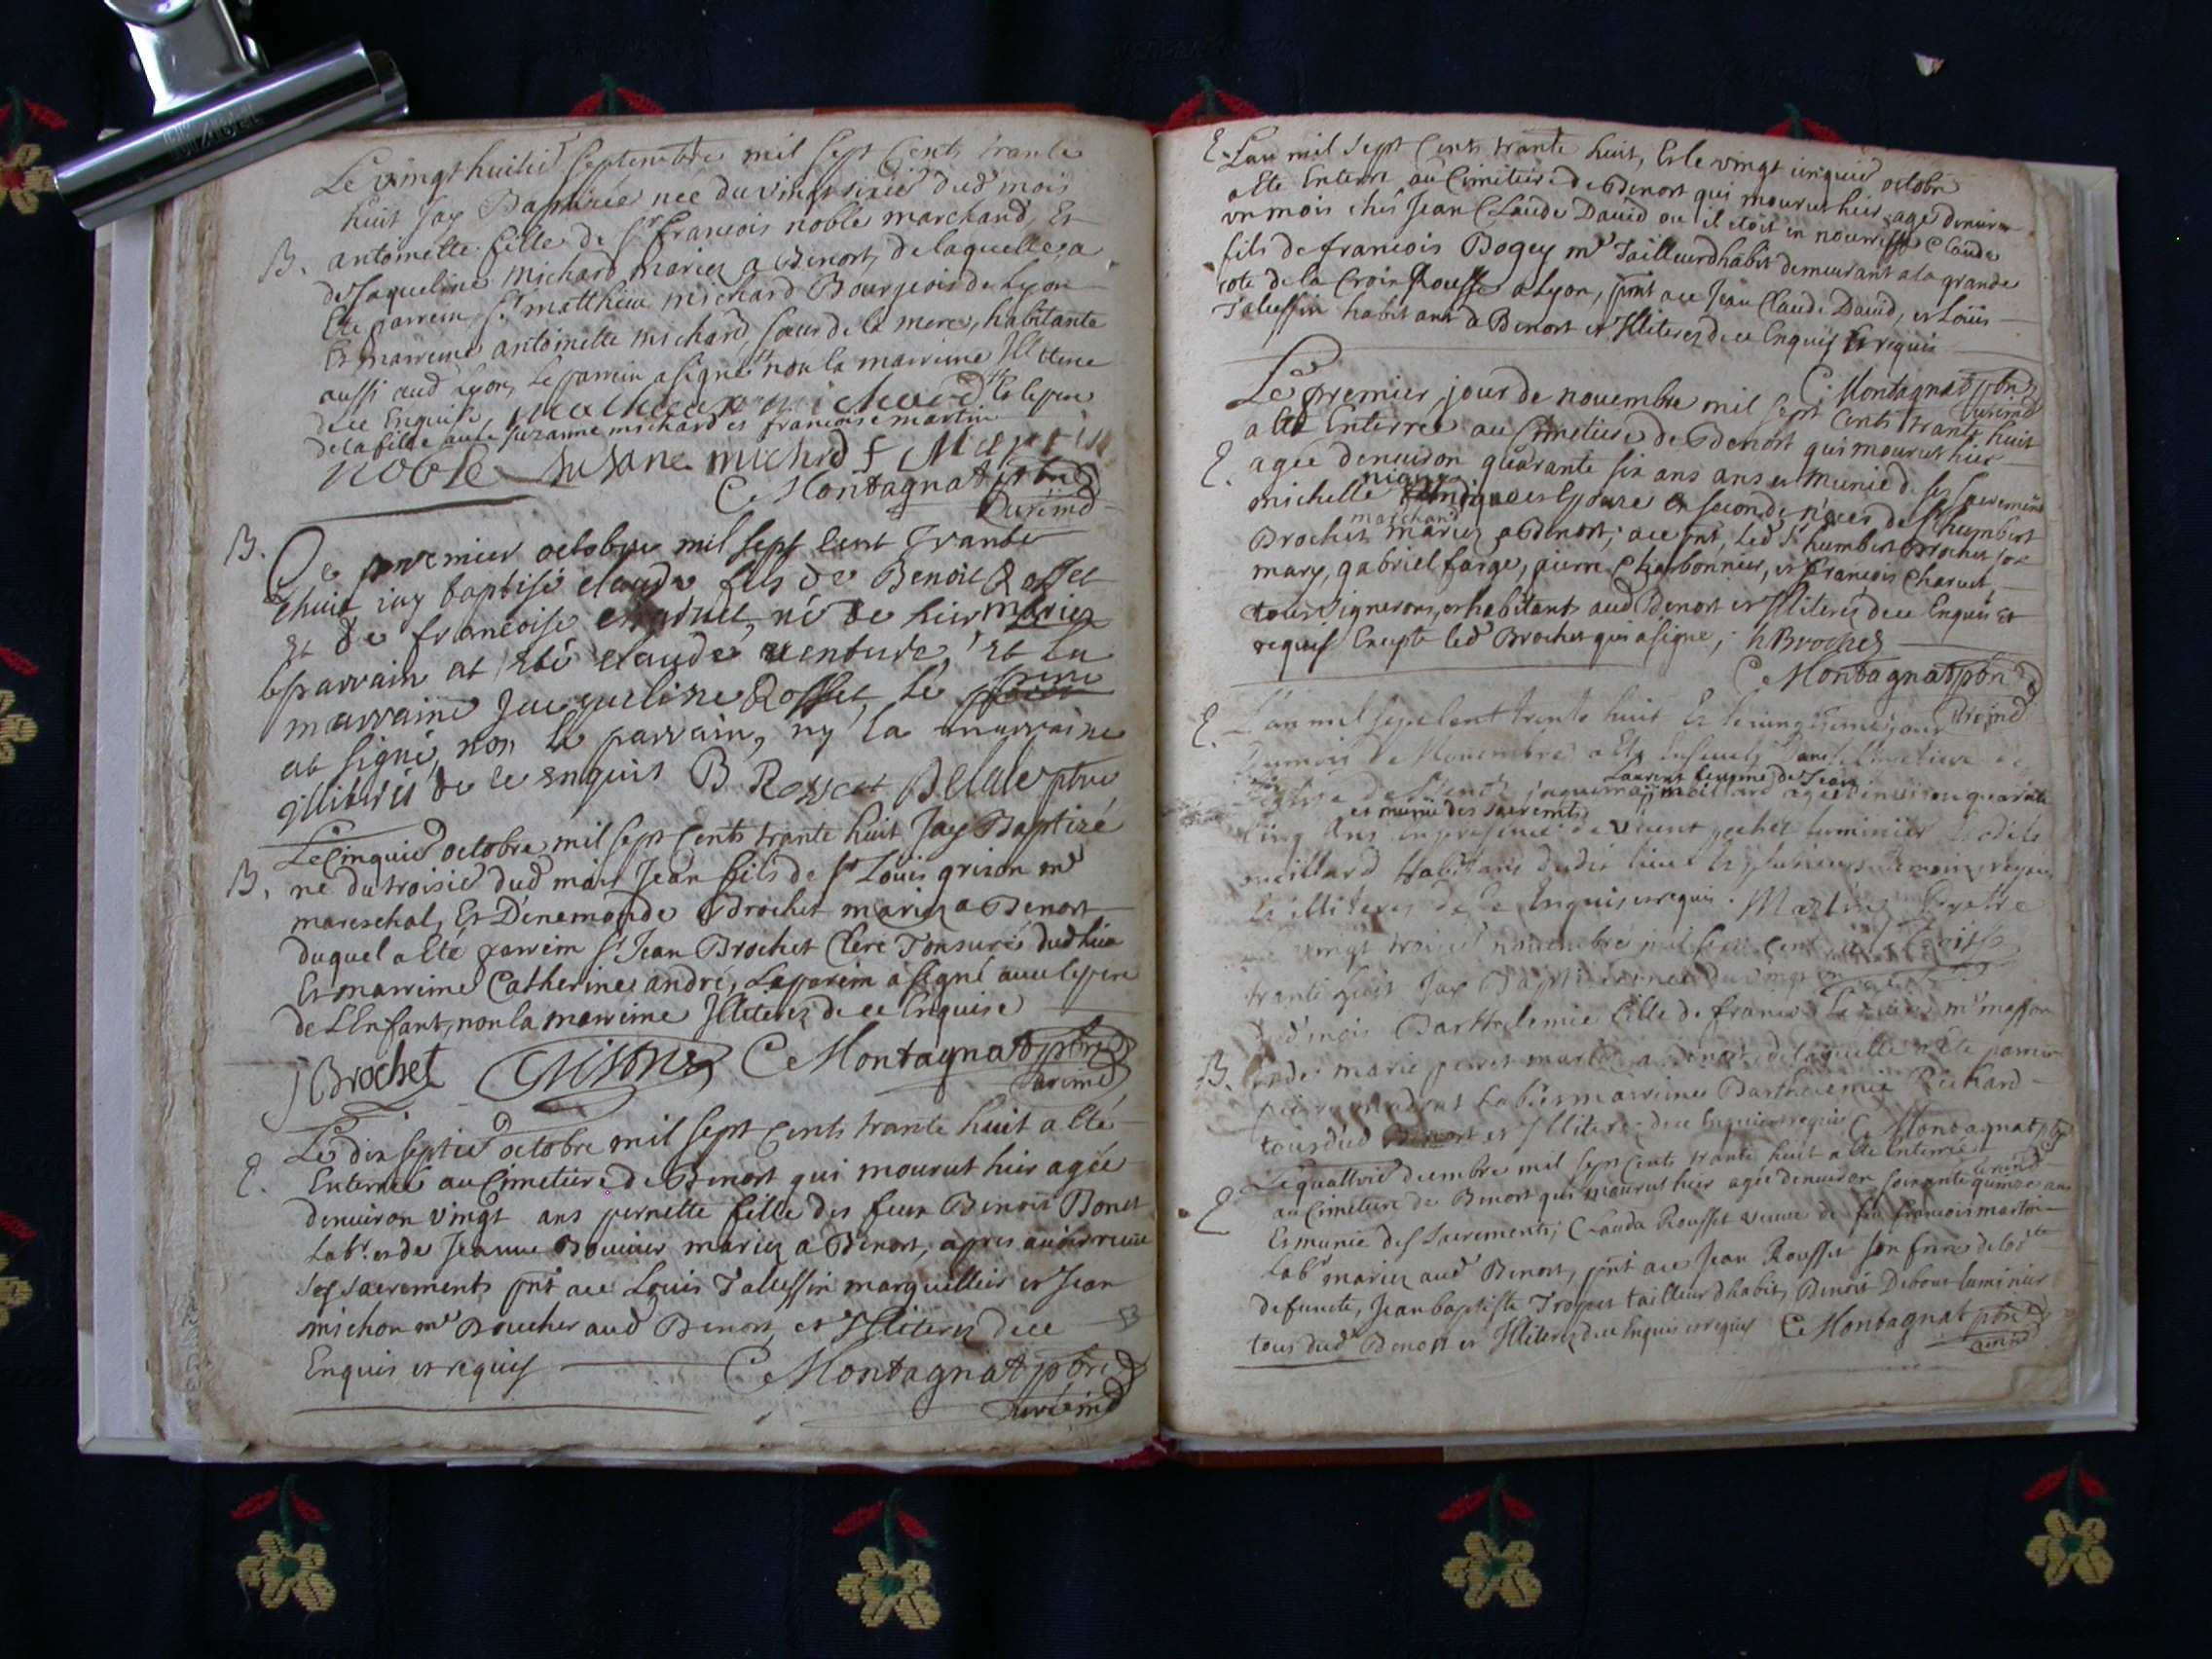 Le vingt huitie septembre mil sept cents trante
huit Jay Baptizée née du vingt sixie dud mois
B. antoinette fille de sr francois noble marchand, Et
de Jaqueline michard mariez a Benost, de laquelle, a
Ete parrein, sr matthieu michard Bourgeois de Lyon
Et marreine antoinette michard, soeur de la mere, habitante
aussi aud Lyon, Le parrein a signé non la marreine Illiteree
de ce Enquise, mathieux michard Et le pere
de la fille avec suzanne michard et francoise martin
noble susane michrd f Martin
C Montagnat pbre
Curé md
B. Le premier octobre mil sept cent trante
huit iay baptisé claude fils de Benoit Rosset
et de francoise charuet, né de hier mariez
le parrain at esté claude venture, et la
marraine Jacqueline Rosset, le pere
at signé, non le parrain, ny la marraine
illiterés de ce enquis B Rosset pbre
Le Cinquie octobre mil sept cents trante huit Jay Baptizé
B. né du troisie dud mois Jean fils de sr Louis grison me
mareschal, Et Denemonde Brochet mariez a Benost
duquel a Eté parrein sr Jean Brochet Clerc Tonsuré dud lieu
Et marreine Catherine andré, Le parrein a signé avec le pere
de LEnfant, non la marreine Illiteree de ce Enquise
J Brochet Grison C Montagnat pbre
Curé md
Le dix septie octobre mil sept cents trante huit a Eté
E. Enterrée au Cimetiere de Benost qui mourut hier agée
denuiron vingt ans pernette fille des feux Benoit Bonet
Labr. et de Jeanne Bouuier mariez a Benost, apres auoir receu
ses sacrements pnt auec Louis Talussin marguillier et Jean
michon me Boucher aud Benost, et Illiterez de ce
Enquis et requis C Montagnat pbre
Curé md
E. Lan mil sept cents trante huit, Et le vingt cinquie octobre
a Ete Enterré au Cimetiere de Benost qui mourut hier, agé denuiron
un mois ches Jean Claude Dauid ou il etoit en nourrisse Claude
fils de francois Bogey me Tailleur dhabit demeurant a la grande
cote de la Croix Rousse a Lyon, pnt auec Jean Claude Dauid, et Louis
Talussin habitant a Benost et Illiterez de ce Enquis Et requis
C Montagnat pbre
Curé md
Le premier, jour de novembre mil sept cents trante huit
a Eté Enterrée au Cimetiere de Benost qui mourut hier
E. agée denuiron quarante six ans ans et munie de ses sacrements
michelle espouze en seconde nöces de sr humbert
marchand
Brochet mariez a Benost; auec pnt, led sr humbert Brochet son
mary, gabriel farge, pierre Charbonnier, et francois Charuet,
tous vignerons, et habitants aud Benost et Illiterés de ce Enquis Et
requis Excepté led Brochet qui a signé; h Brochet
C Montagnat pbre
Curé md
E. Lan mil sept cent trente huit Et le jour
du mois de Novembre a Ete dans le Cimetiere de
Laurent femme de Jean
meillard agée denuiron quarante
et munie des sacremts
cinq ans en presence de vincent luminier
meillard habitans dudit lieu Et plusieurs
Et illiteres de ce Enquis et requis.
vingt troisie nouembre mil sept cent
trante huit Jay Baptizée née du vingt
dud mois Barthelemie fille de francois me masson
B. Et de marie perret mariez a Benost de laquelle a Ete parrein
pierre marreine Barthelemie Richard
tous dud Benost et Illiterez de ce Enquis et requis C Montagnat pbre
Curé md
Le quattrie decembre mil sept cents trante huit a Eté Enterrée
E au Cimetiere de Benost qui mourut hier agée denuiron soixante quinze ans
Et munie des sacrements, Clauda Rousset veuue de feu francois martin
Labr mariez aud Benost, pnt auec Jean Rousset son frere de lad
defuncte, Jean baptiste tailleur dhabit, Benoit Debout luminier
tous dud Benost et Illiterez de ce Enquis et requis C Montagnat pbre
Curé md